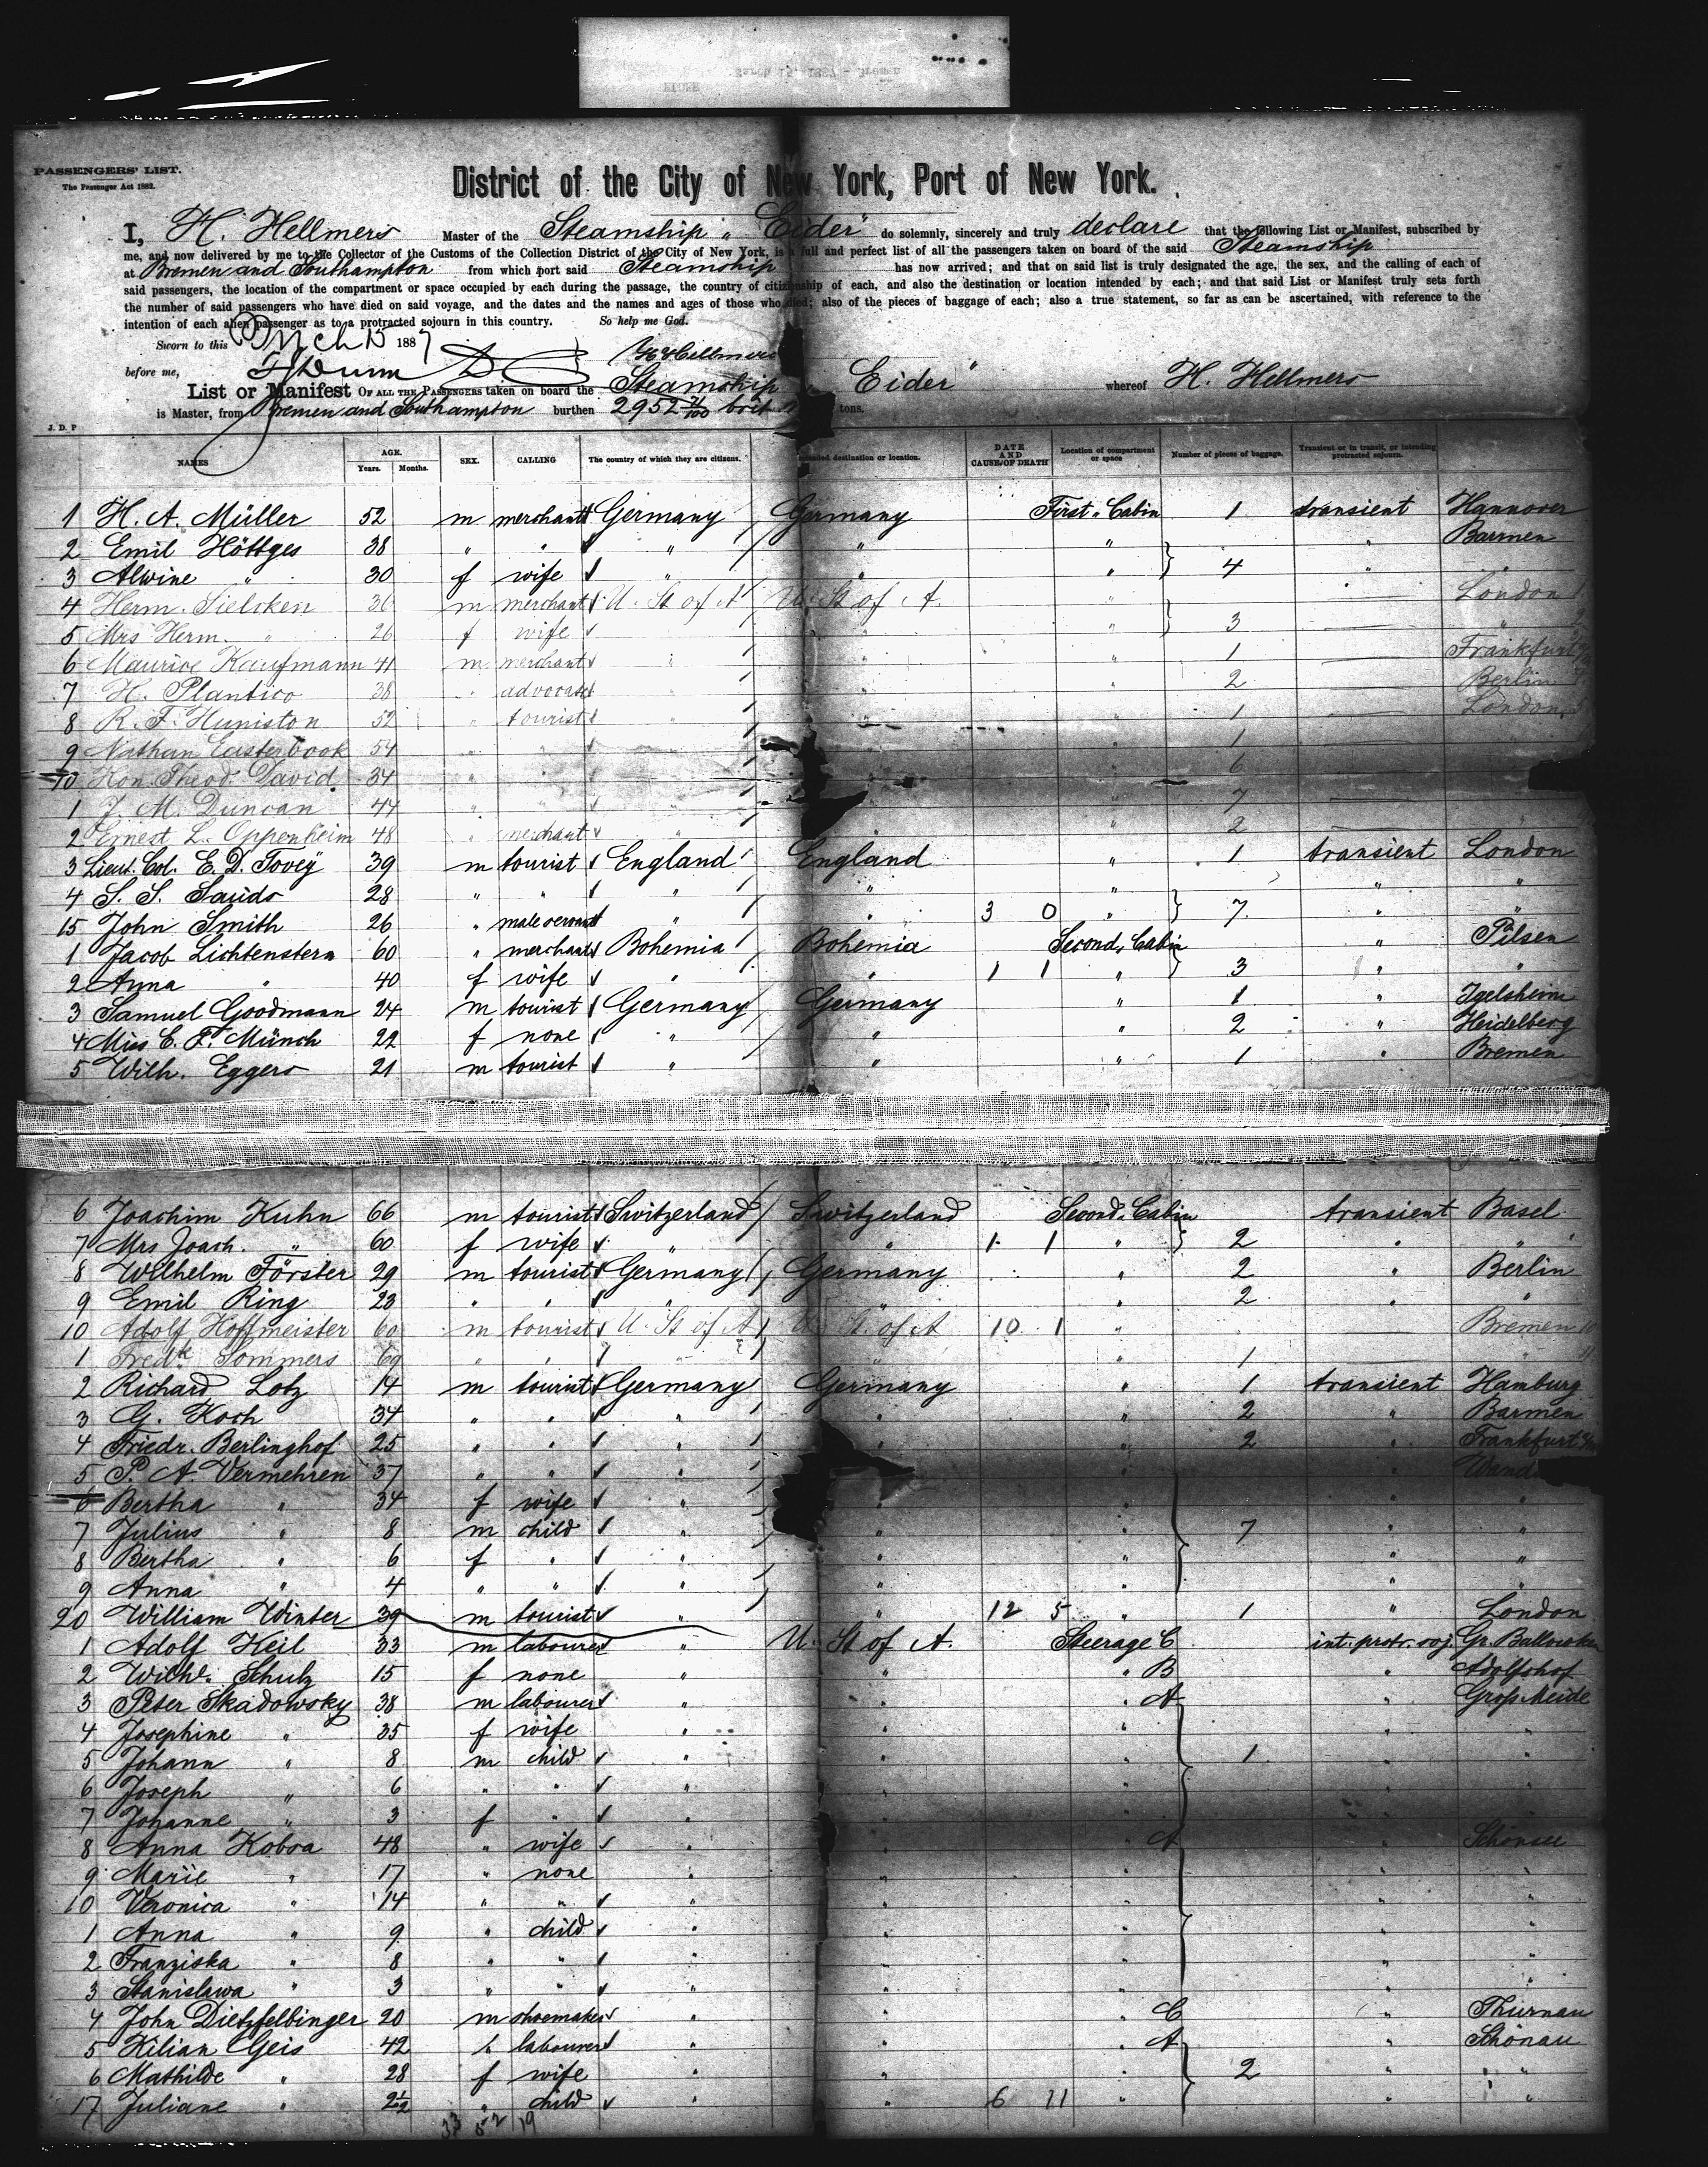 PASSENGERS' LIST.
The Passenger Act 1882.
District of the City of New York, Port of New York.
I, H. Hellmers Master of the Steamship „Eider" do solemnly, sincerely and truly declare that the following List or Manifest, subscribed by
me, and now delivered by me to the Collector of the Customs of the Collection District of the City of New York, is a full and perfect list of all the passengers taken on board of the said Steamship
at Bremen and Southampton from which port said Steamship has now arrived; and that on said list is truly designated the age, the sex, and the calling of each of
said passengers, the location of the compartment or space occupied by each during the passage, the country of citizenship of each, and also the destination or location intended by each; and that said List or Manifest truly sets forth
the number of said passengers who have died on said voyage, and the dates and the names and ages of those who died; also of the pieces of baggage of each; also a true statement, so far as can be ascertained, with reference to the
intention of each alien passenger as to a protracted sojourn in this country. So help me God.
Sworn to this Mch 15 1887
before me,
List or Manifest OF ALL THE PASSENGERS taken on board the Steamship „Eider" whereof H. Hellmers
is Master, from Bremen and Southampton burthen 2952 tons.
J. D. P
NAMES AGE. Years. Months. SEX. CALLING The country of which they are citizens. destination or location. DATE AND CAUSE OF DEATH Location of compartment or space Number of pieces of baggage. Transient or in transit, or intending protracted sojourn.
1 H. A. Müller 52 m merchant Germany Germany First Cabin 1 transient Hannover
2 Emil Höttges 38 " " " " " " Barmen
3 Alwine " 30 f wife " " " 4 " "
4 Herm. Sielcken 36 m merchant U. St of A U. St of A. " London
5 Mrs Herm. " 26 f wife " " " 3 "
6 Maurice Kaufmann 41 m merchant " " " 1 Frankfurt
7 H. Plantico 38 " advocate " " " 2 Berlin
8 R. F. Huniston 52 " tourist " " " 1 London
9 Nathan Easterbook 54 " " " 1
10 Hon. Theod. David 34 " " " 6
1 J. M. Duncan 44 " " " 7
2 Ernest L. Oppenheim 48 " merchant " " " 2
3 Lieut. Col. E. D. Tovey 39 m tourist England England " 1 transient London
4 S. S. Sauds 28 " " " " " " "
15 John Smith 26 " male servant " " 3 0 " 7 " "
1 Jacob Lichtenstern 60 " merchant Bohemia Bohemia Second Cabin " Pilsen
2 Anna " 40 f wife " " 1 1 " 3 " "
3 Samuel Goodmann 24 m tourist Germany Germany " 1 " Igelsheim
4 Miss C. F. Münch 22 f none " " " 2 " Heidelberg
5 Wilh. Eggers 21 m tourist " " " 1 " Bremen
6 Joachim Kuhn 66 m tourist Switzerland Switzerland Second Cabin transient Basel
7 Mrs Joach. " 60 f wife " " 1 1 " 2 " "
8 Wilhelm Förster 29 m tourist Germany Germany " 2 " Berlin
9 Emil Ring 23 " " " " " 2 " "
10 Adolf Hoffmeister 60 m tourist U. St of A U. St. of A 10 1 " Bremen
1 Fredk Sommers 69 " " " " " 1 "
2 Richard Lotz 14 m tourist Germany Germany " 1 transient Hamburg
3 G. Koch 34 " " " " " 2 " Barmen
4 Friedr. Berlinghof 25 " " " " " 2 " Frankfurt
5 P. A. Vermehren 37 " " " " " " Wand
6 Bertha " 34 f wife " " " " "
7 Julius " 8 m child " " " 7 " "
8 Bertha " 6 f " " " " " "
9 Anna " 4 " " " " " " "
20 William Winter 39 m tourist " " 12 5 " 1 " London
1 Adolf Keil 33 m labourer " U. St of A. Steerage C int. protr. soj. Gr. Ballowken
2 Wilhe. Schulz 15 f none " " " B " Adolfshof
3 Peter Skadowsky 38 m labourer " " " A " Gross Meide
4 Josephine " 35 f wife " " " " "
5 Johann " 8 m child " " " 1 " "
6 Joseph " 6 " " " " " " "
7 Johanne " 3 f " " " " " "
8 Anna Kobsa 48 " wife " " A " Schönsee
9 Marie " 17 " none " " " " "
10 Veronica " 14 " " " " " " "
1 Anna " 9 " child " " " " "
2 Franziska " 8 " " " " " " "
3 Stanislawa " 3 " " " " " " "
4 John Dietzfelbinger 20 m shoemaker " " C " Thurnau
5 Kilian Geis 42 " labourer " " " A " Schönau
6 Mathilde " 28 f wife " " " 2 " "
17 Juliane " 2½ " child " " 6 11 " " "
33 52 19